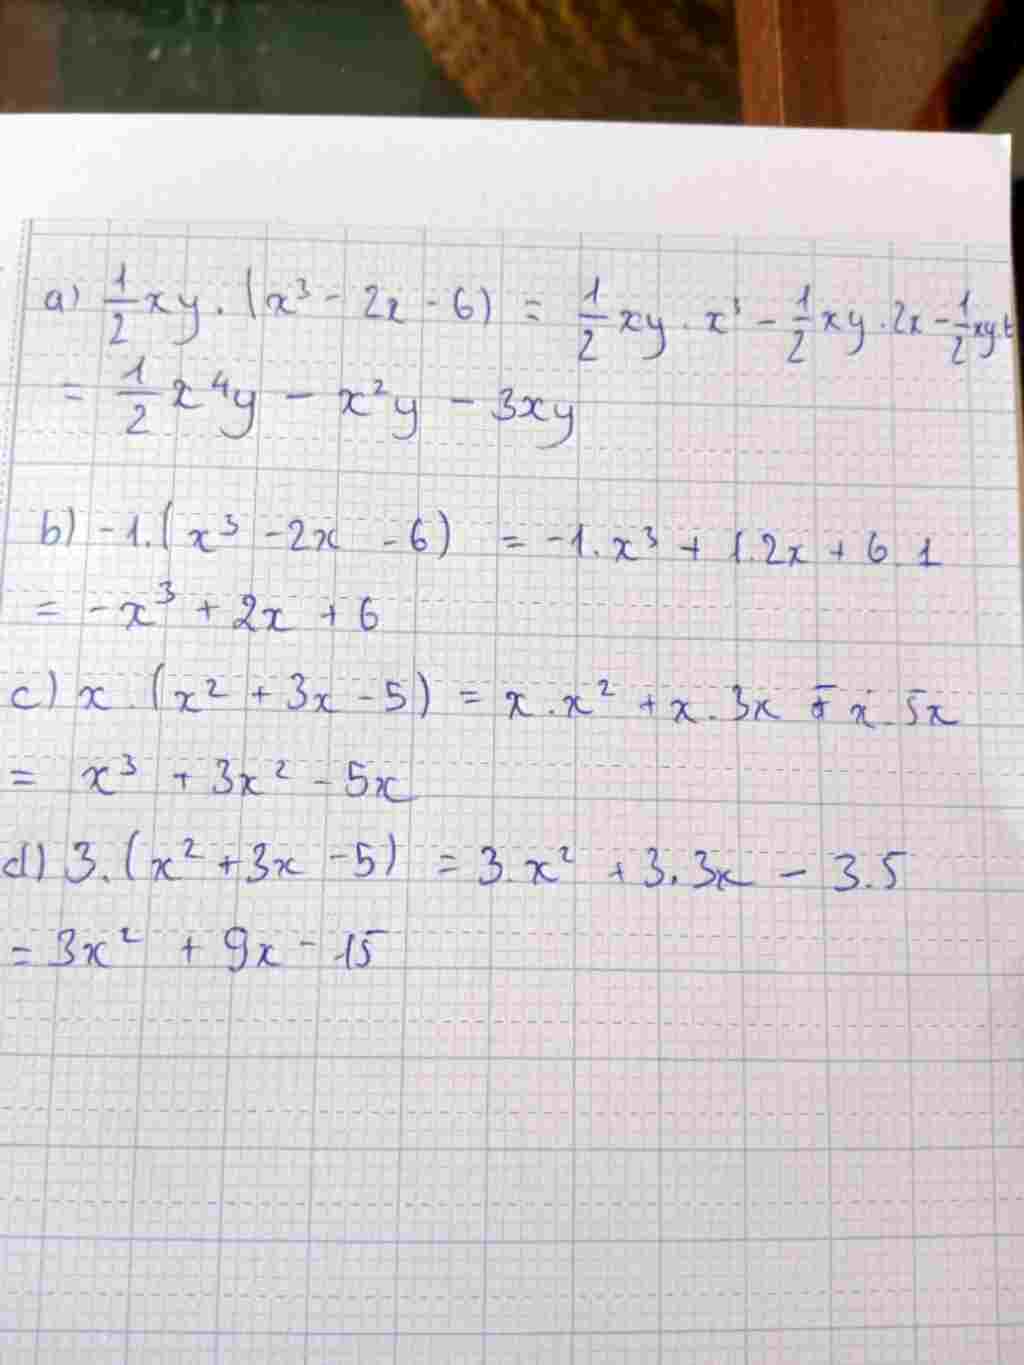 a) 1/2 xy . (x³ - 2x - 6) = 1/2 xy . x³ - 1/2 xy . 2x - 1/2 xy . 6
= 1/2 x⁴y - x²y - 3xy
b) -1. (x³ - 2x - 6) = -1. x³ + 1. 2x + 6 . 1
= -x³ + 2x + 6
c) x . (x² + 3x - 5) = x . x² + x . 3x - x . 5x
= x³ + 3x² - 5x
d) 3. (x² + 3x - 5) = 3. x² + 3. 3x - 3. 5
= 3x² + 9x - 15